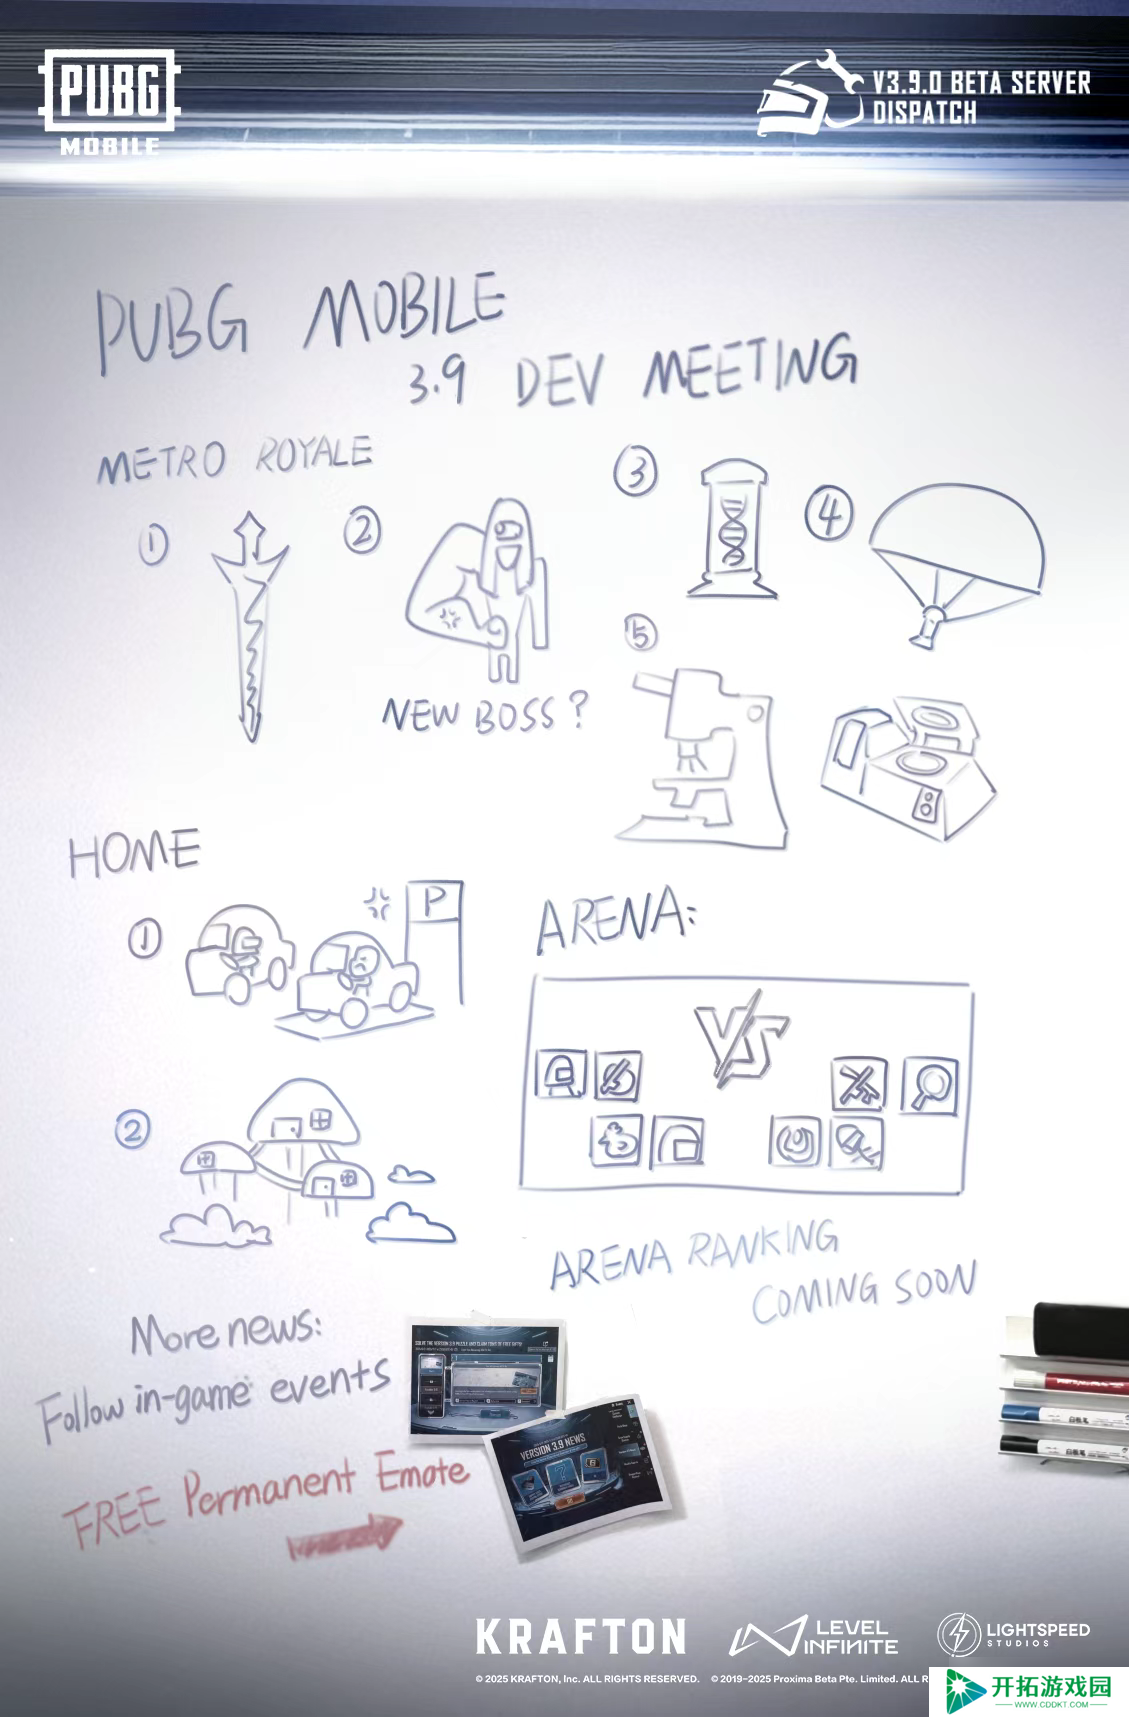 PUBG
MOBILE
V3.9.0 BETA SERVER
DISPATCH
PUBG MOBILE
3.9 DEV MEETING
METRO ROYALE
①
②
NEW BOSS?
③
④
⑤
HOME
①
P
②
ARENA:
VS
ARENA RANKING
COMING SOON
More news:
Follow in-game events
FREE Permanent Emote
SOLVE THE VERSION 3.9 PUZZLE AND CLAIM TONS OF FREE GIFTS!
VERSION 3.9 NEWS
?
KRAFTON
LEVEL
INFINITE
LIGHTSPEED
STUDIOS
© 2025 KRAFTON, Inc. ALL RIGHTS RESERVED. © 2019-2025 Proxima Beta Pte. Limited. ALL R
开拓游戏园
WWW.CDDKT.COM